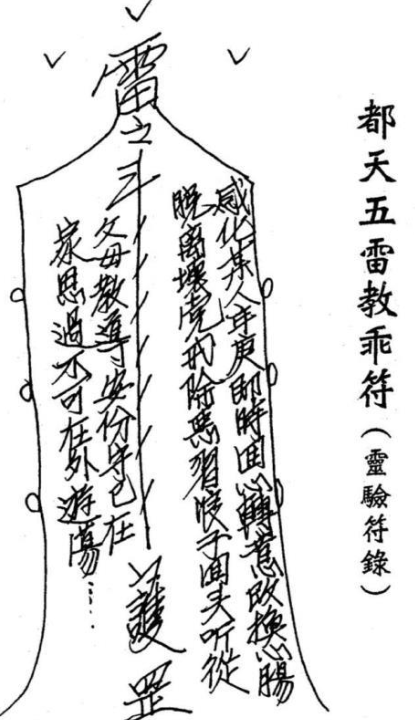 都天五雷教乖符（靈驗符錄）
雷
感化某人年庚即時回心轉意改換心腸
脫離壞党戒除惡習浪子回头听從
父母教導安份守己在
家思過不可在外遊蕩……
護
罡